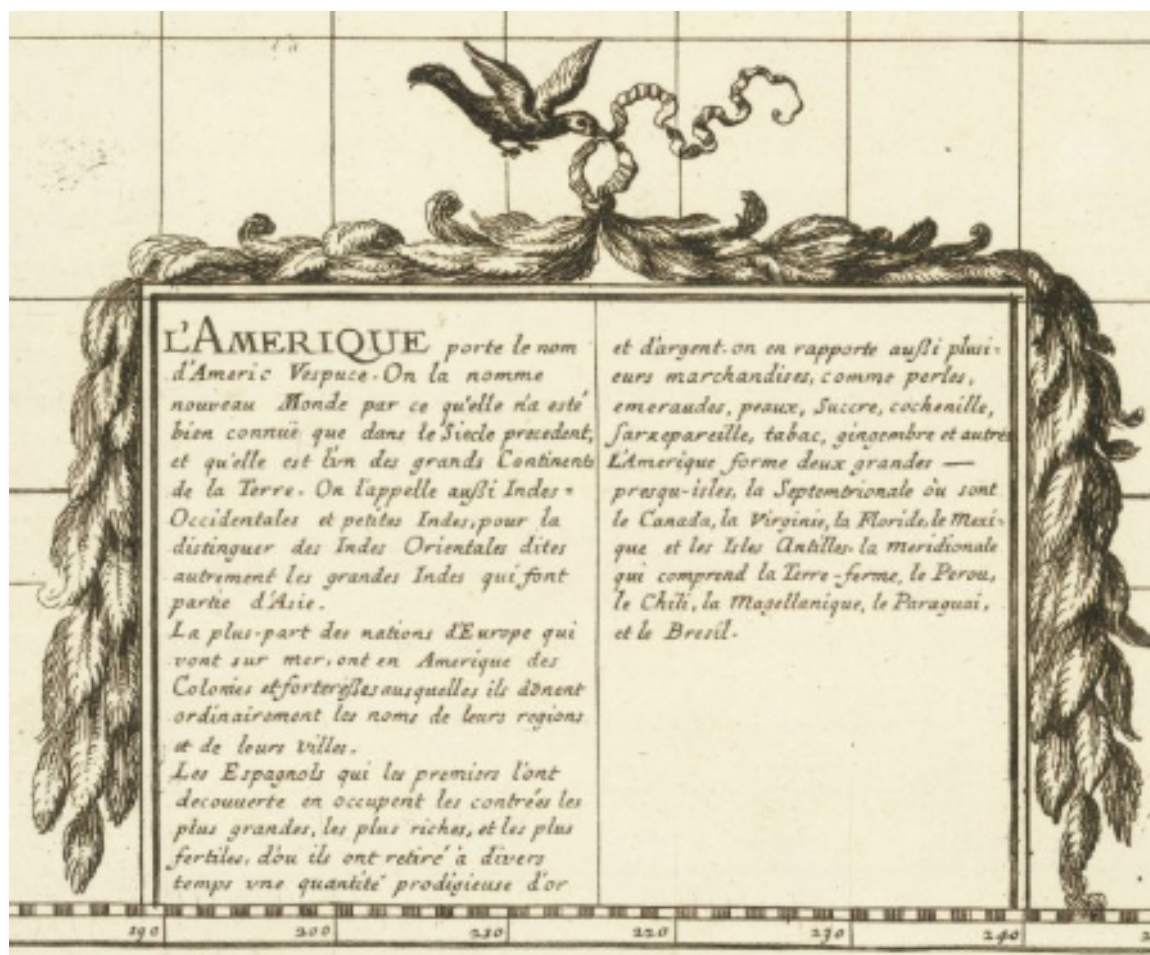 L'AMERIQUE porte le nom
d'Americ Vespuce. On la nomme
nouveau Monde par ce qu'elle n'a esté
bien connuë que dans le Siecle precedent,
et qu'elle est l'vn des grands Continents
de la Terre. On l'appelle aussi Indes =
Occidentales et petites Indes, pour la
distinguer des Indes Orientales dites
autrement les grandes Indes qui font
partie d'Asie.
La plus-part des nations d'Europe qui
vont sur mer, ont en Amerique des
Colonies et forteresses ausquelles ils dõnent
ordinairement les noms de leurs regions
et de leurs villes.
Les Espagnols qui les premiers l'ont
decouuerte en occupent les contrées les
plus grandes, les plus riches, et les plus
fertiles, d'ou ils ont retiré à divers
temps vne quantité prodigieuse d'or
et d'argent. on en rapporte aussi plusi=
eurs marchandises, comme perles,
emeraudes, peaux, Succre, cochenille,
sarzepareille, tabac, gingembre et autres
L'Amerique forme deux grandes —
presqu-isles, la Septemtrionale où sont
le Canada, la Virginie, la Floride, le Mexi=
que et les Isles Antilles. la meridionale
qui comprend la Terre-ferme, le Perou,
le Chili, la Magellanique, le Paraguai,
et le Bresil.
190 200 210 220 230 240